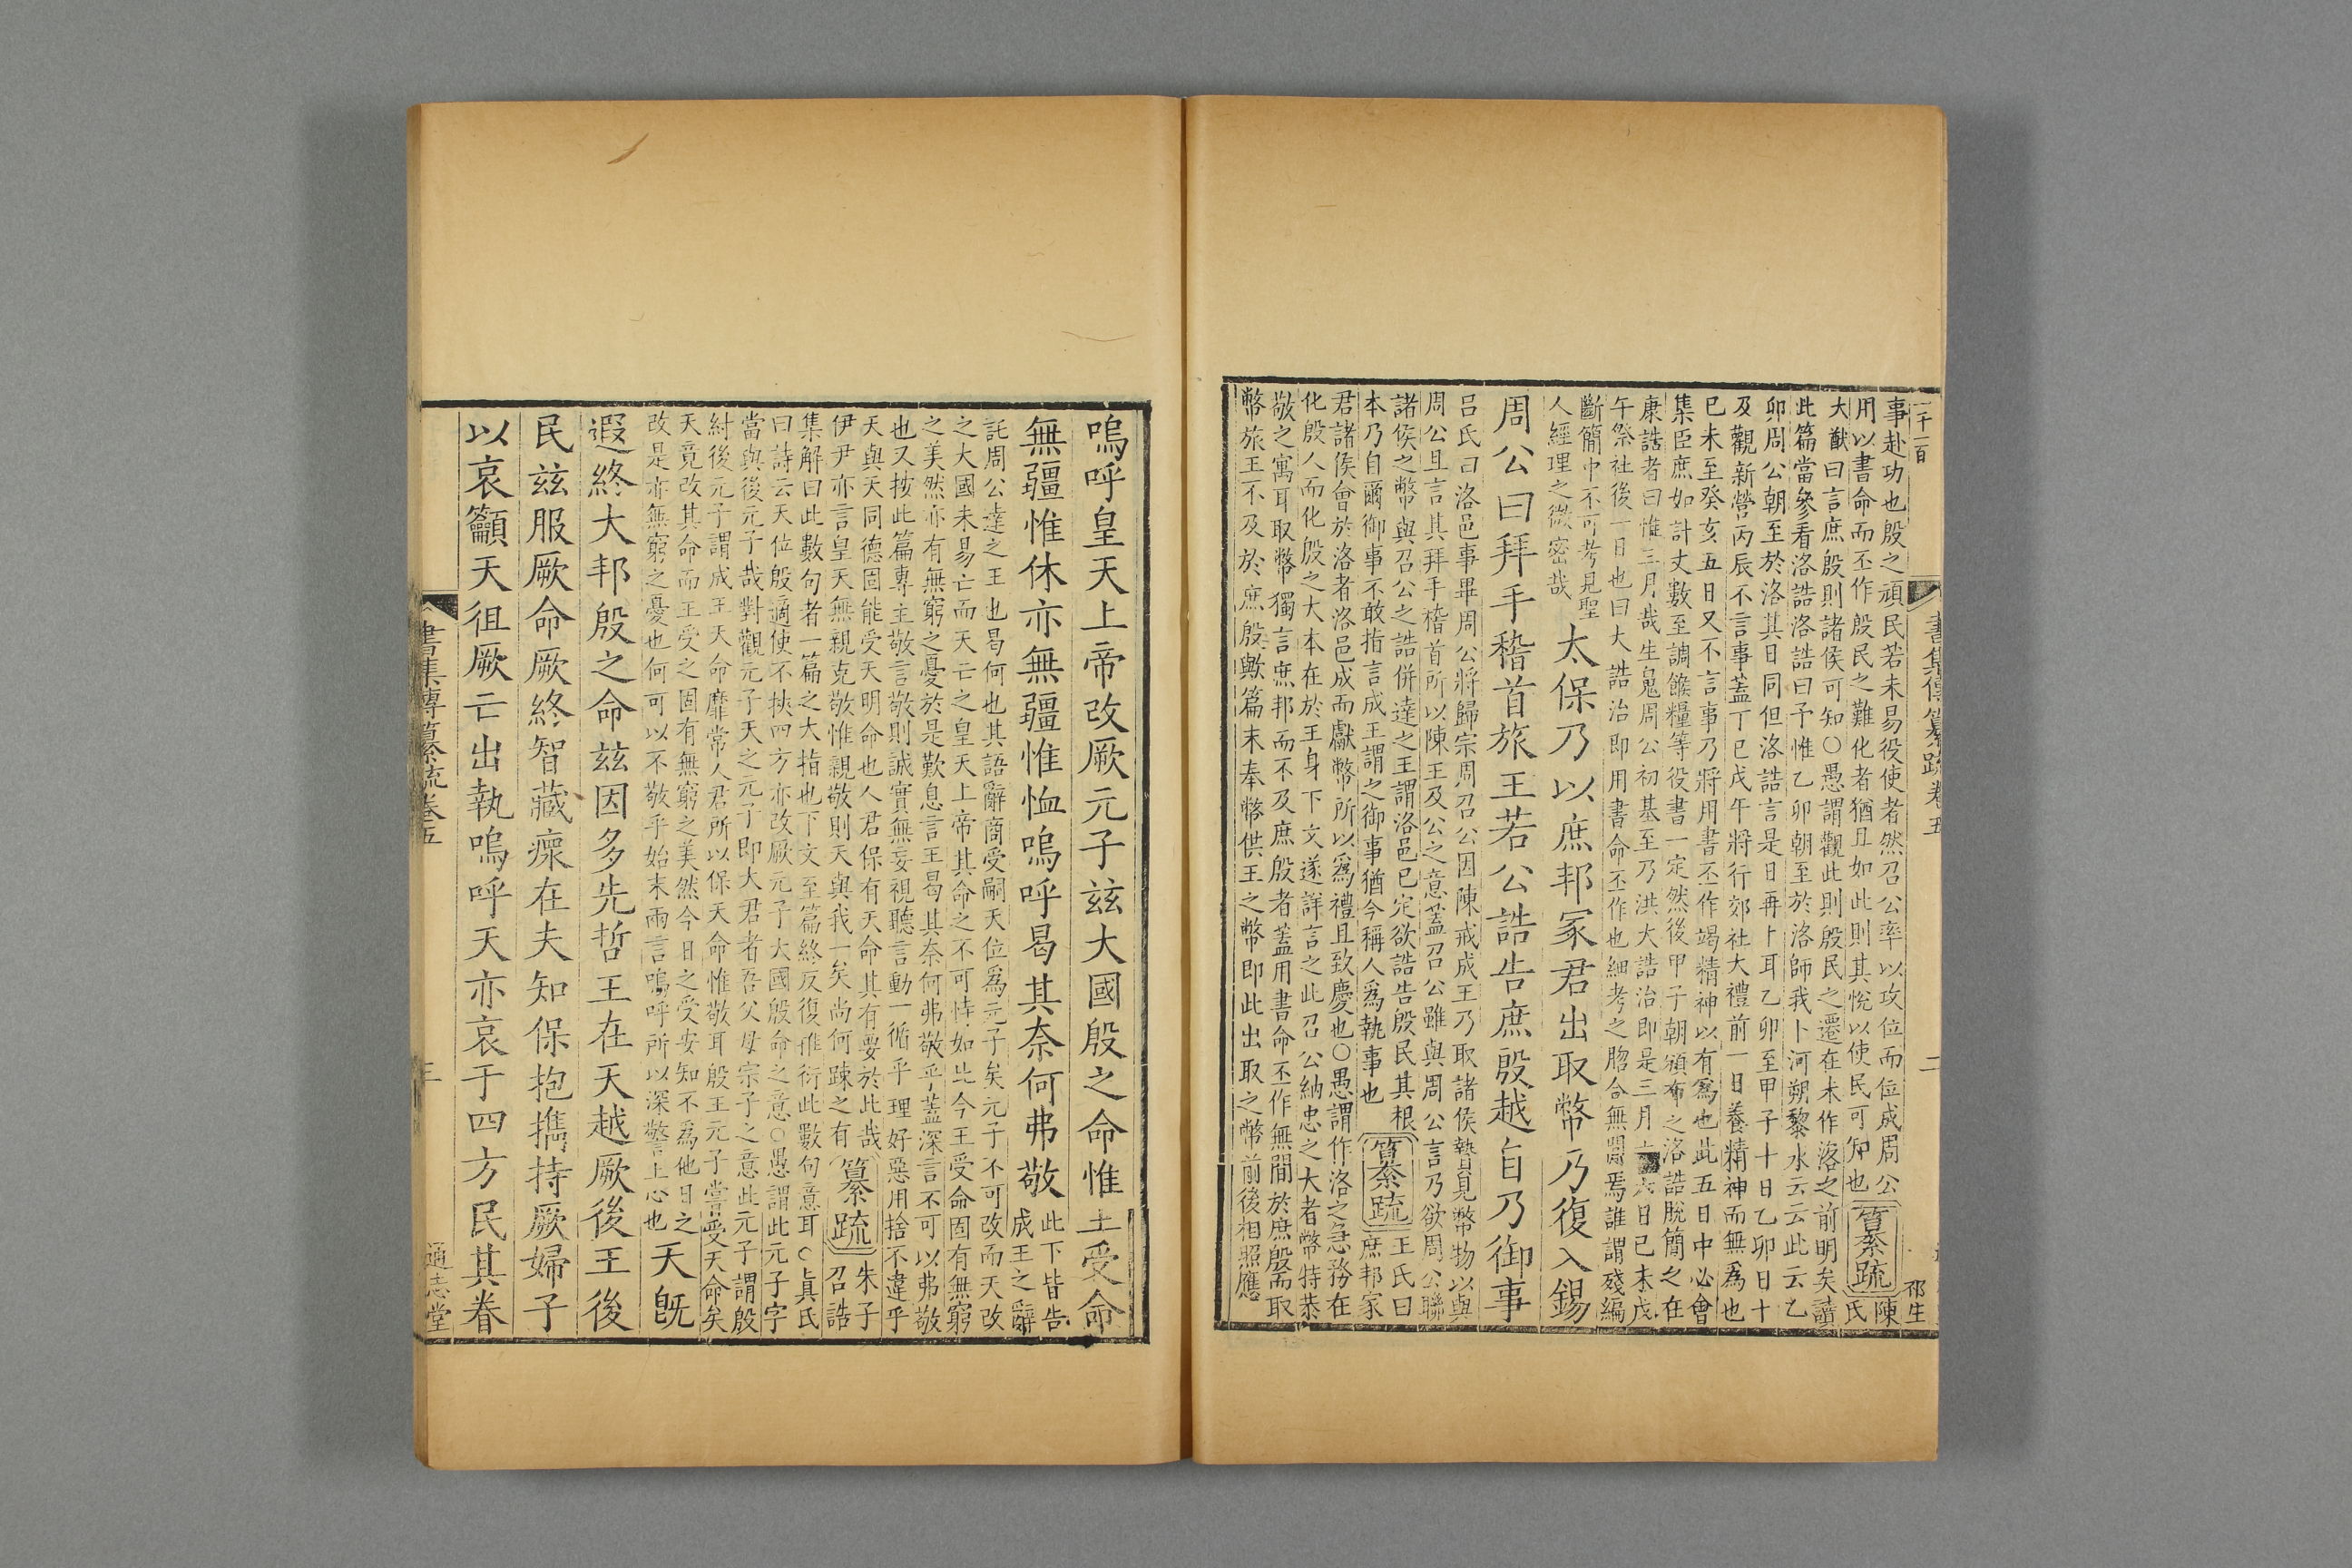 二千一百
書集傳纂疏卷五
二
祁生
事赴功也殷之頑民若未易役使者然召公率以攻位而位成周公
用以書命而丕作殷民之難化者猶且如此則其悅以使民可知也 纂疏 陳氏
大猷曰言庶殷則諸侯可知○愚謂觀此則殷民之遷在未作洛之前明矣讀
此篇當參看洛誥洛誥曰予惟乙卯朝至於洛師我卜河朔黎水云云此云乙
卯周公朝至於洛其日同但洛誥言是日再卜耳乙卯至甲子十日乙卯日十
及觀新營丙辰不言事蓋丁巳戊午將行郊社大禮前一日養精神而無為也
巳未至癸亥五日又不言事乃將用書丕作竭精神以有為也此五日中必會
集臣庶如計丈數至調餱糧等役書一定然後甲子朝頒布之洛誥脫簡之在
康誥者曰惟三月哉生魄周公初基至乃洪大誥治即是三月十六日巳未戊
午祭社後一日也曰大誥治即用書命丕作也細考之脗合無間焉誰謂殘編
斷簡中不可考見聖
人經理之微密哉
太保乃以庶邦冢君出取幣乃復入錫
周公曰拜手稽首旅王若公誥告庶殷越自乃御事
呂氏曰洛邑事畢周公將歸宗周召公因陳戒成王乃取諸侯贄見幣物以與
周公且言其拜手稽首所以陳王及公之意蓋召公雖與周公言乃欲周公聯
諸侯之幣與召公之誥併達之王謂洛邑已定欲誥告殷民其根
本乃自爾御事不敢指言成王謂之御事猶今稱人為執事也 纂疏 王氏曰庶邦家
君諸侯會於洛者洛邑成而獻幣所以為禮且致慶也○愚謂作洛之急務在
化殷人而化殷之大本在於王身下文遂詳言之此召公納忠之大者幣特恭
敬之寓耳取幣獨言庶邦而不及庶殷者蓋用書命丕作無間於庶殷而取
幣旅王不及於庶殷歟篇末奉幣供王之幣即此出取之幣前後相照應
嗚呼皇天上帝改厥元子玆大國殷之命惟王受命
無疆惟休亦無疆惟恤嗚呼曷其奈何弗敬
此下皆告成王之辭
託周公達之王也曷何也其語辭商受嗣天位為元子矣元子不可改而天改
之大國未易亡而天亡之皇天上帝其命之不可恃如此今王受命固有無窮
之美然亦有無窮之憂於是歎息言王曷其奈何弗敬乎蓋深言不可以弗敬
也又按此篇專主敬言敬則誠實無妄視聽言動一循乎理好惡用捨不違乎
天與天同德固能受天明命也人君保有天命其有要於此哉
伊尹亦言皇天無親克敬惟親敬則天與我一矣尚何踈之有 纂疏 朱子召誥
集解曰此數句者一篇之大指也下文至篇終反復推衍此數句意耳○真氏
曰詩云天位殷適使不挾四方亦改厥元子大國殷命之意○愚謂此元子字
當與後元子哉對觀元子天之元子即大君者吾父母宗子之意此元子謂殷
紂後元子謂成王天命靡常人君所以保天命惟敬耳殷王元子嘗受天命矣
天竟改其命而王受之固有無窮之美然今日之受安知不為他日之
改是亦無窮之憂也何可以不敬乎始末兩言嗚呼所以深警上心也
天旣
遐終大邦殷之命玆因多先哲王在天越厥後王後
民玆服厥命厥終智藏瘝在夫知保抱攜持厥婦子
以哀籲天徂厥亡出執嗚呼天亦哀于四方民其眷
書集傳纂疏卷五
三
通志堂